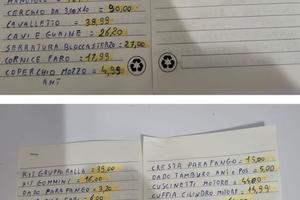 CERCHIO DA 3,00X10 = 90,00
CAVALLETTO = 38,99
CAVI E GUAINE = 26,20
SERRATURA BLOCCASTERZO = 27,00
CORNICE FARO = 17,99
COPERCHIO MOZZO = 4,99
ANT
KIT GRUPPO RALLA = 39,00
KIT GOMMINI = 16,00
DADO PARAFANGO = 3,20
CRESTA PARAFANGO = 15,00
DADO TAMBURO ANT E POS = 5,00
CUSCINETTI MOTORE = 44,00
CUFFIA CILINDRO MOTORE = 14,99